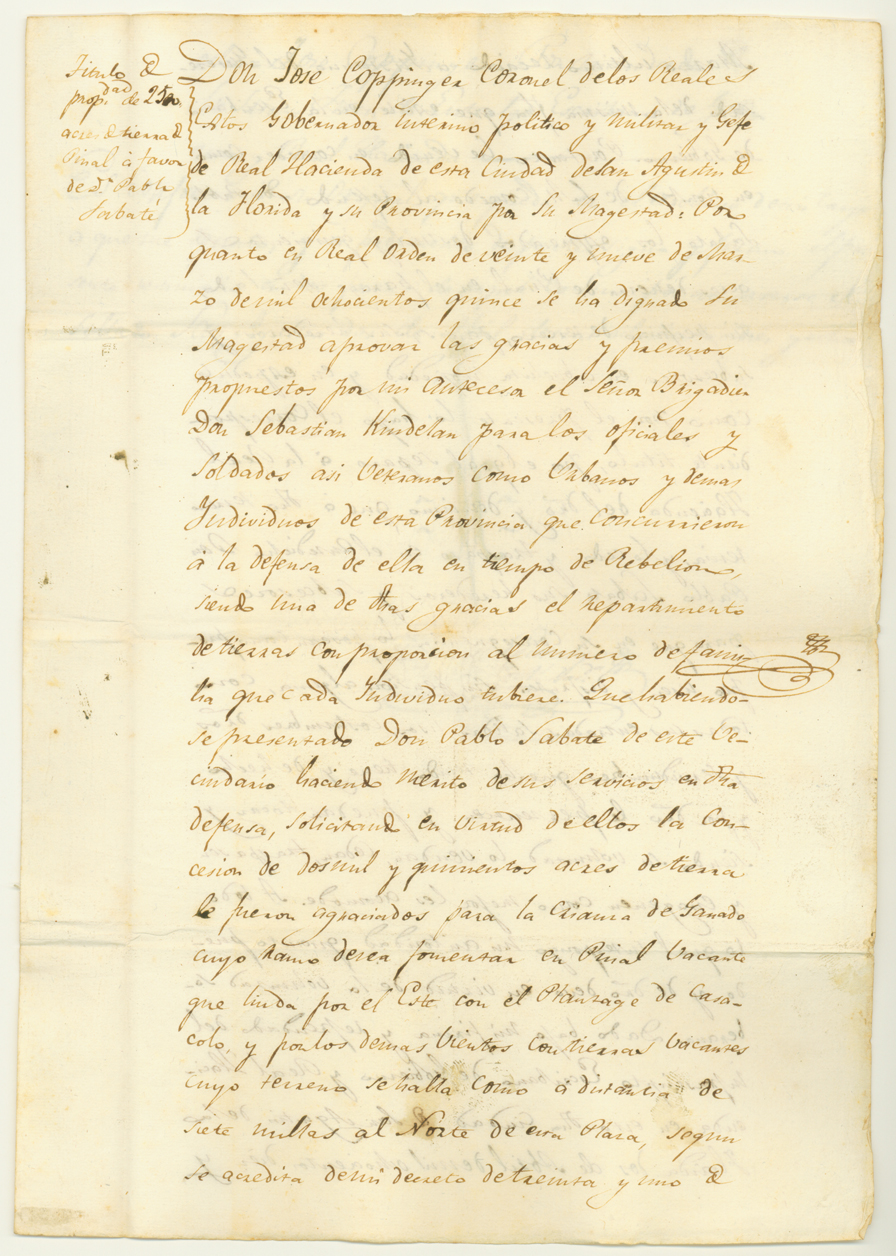 Titulo de
propdad de 2500
acres de tierra de
Pinal á favor
de Dn Pablo
Sabaté
Don Jose Coppinger Coronel delos Reales
Extos Gobernador interino politico y militar y Gefe
de Real Hacienda de esta Ciudad desan Agustin de
la Florida y su Provincia por Su Magestad: Por
quanto en Real Orden de veinte y nueve de Mar-
zo demil ochocientos quince se ha dignado Su
Magestad aprovar las gracias y premios
propuestos por mi Antecesor el Señor Brigadier
Don Sebastian Kindelan para los oficiales y
Soldados asi Veteranos como Urbanos y demas
Individuos de esta Provincia que concurrieron
á la defensa de ella en tiempo de Rebelion,
siendo una de dhas gracias el repartimiento
de tierras con proporcion al numero de fami-
lia que cada Individuo tubiere. Que habiendo-
se presentado Don Pablo Sabate de este Ve-
cindario haciendo merito de sus servicios en dha
defensa, solicitando en virtud de ellos la Con-
cesion de dosmil y quinientos acres de tierra
le fueron agraciados para la crianza de Ganado
cuyo ramo desea fomentar en Pinal Vacante
que linda por el Este con el Plantage de Casa-
colo, y por los demas Vientos con tierras Vacantes
cuyo terreno se halla como á distancia de
siete millas al Norte de esta Plaza, segun
se acredita de mi decreto de treinta y uno de